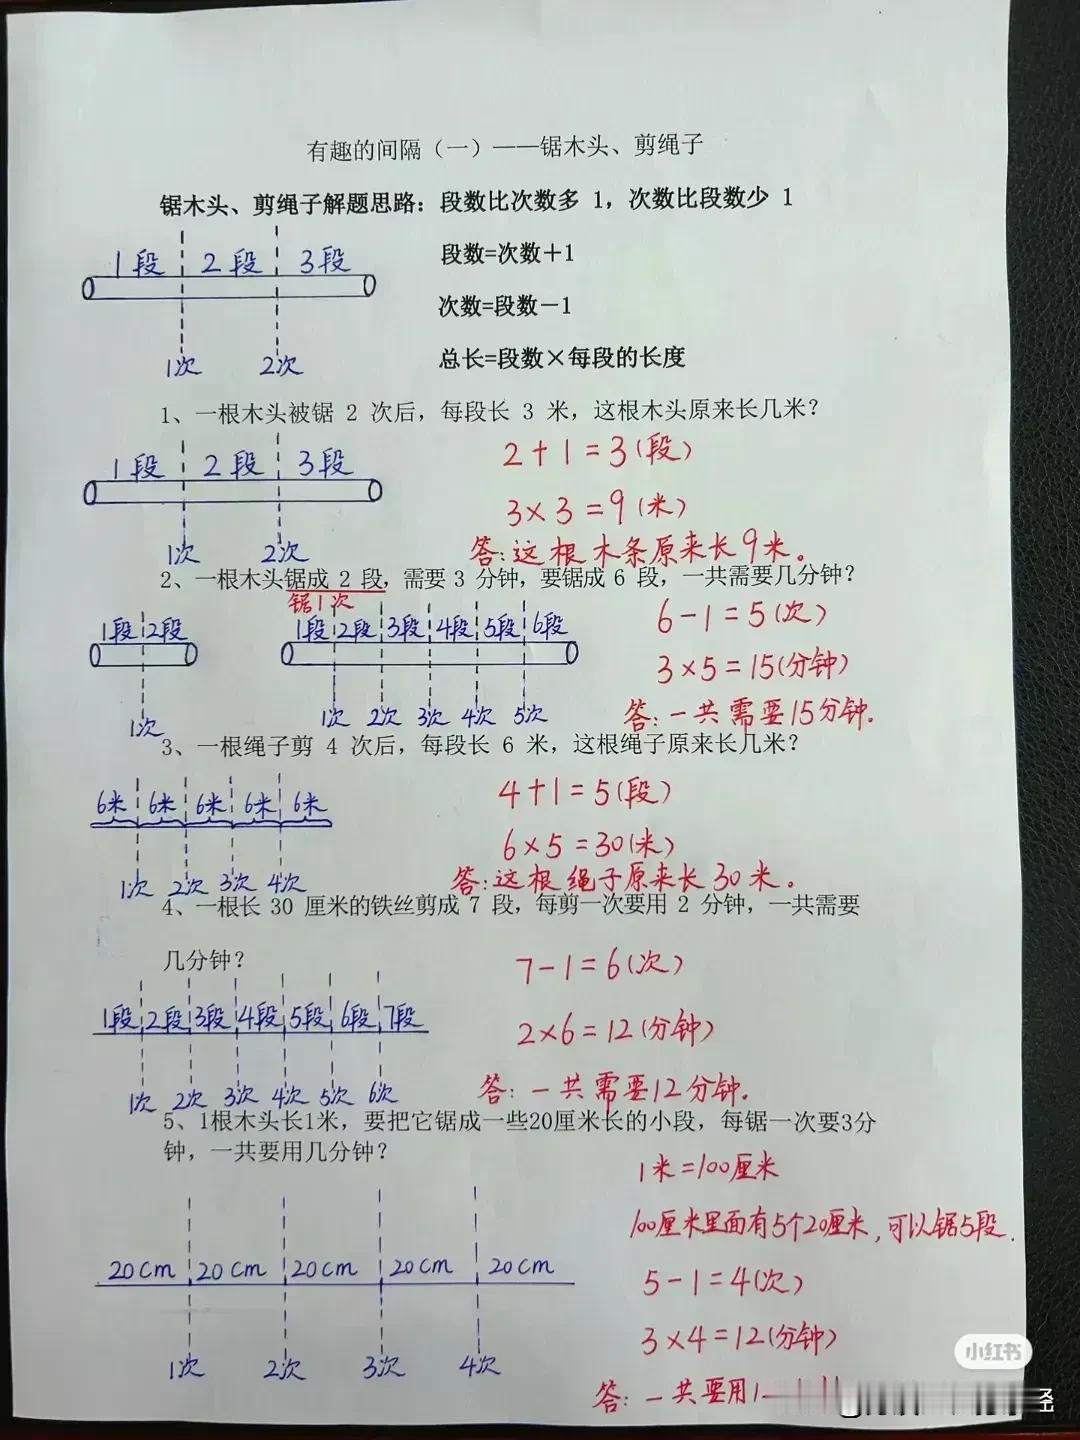 有趣的间隔（一）——锯木头、剪绳子
锯木头、剪绳子解题思路：段数比次数多 1，次数比段数少 1
1段 2段 3段
段数=次数＋1
次数=段数－1
1次 2次
总长=段数×每段的长度
1、一根木头被锯 2 次后，每段长 3 米，这根木头原来长几米？
2+1=3(段)
1段 2段 3段
3×3=9(米)
1次 2次
答:这根木条原来长9米。
2、一根木头锯成 2 段，需要 3 分钟，要锯成 6 段，一共需要几分钟？
锯1次
6-1=5(次)
1段 2段 1段 2段 3段 4段 5段 6段
3×5=15(分钟)
1次 1次 2次 3次 4次 5次
答:一共需要15分钟.
3、一根绳子剪 4 次后，每段长 6 米，这根绳子原来长几米？
4+1=5(段)
6米 6米 6米 6米 6米
6×5=30(米)
1次 2次 3次 4次
答:这根绳子原来长30米。
4、一根长 30 厘米的铁丝剪成 7 段，每剪一次要用 2 分钟，一共需要
几分钟？
7-1=6(次)
1段 2段 3段 4段 5段 6段 7段
2×6=12(分钟)
1次 2次 3次 4次 5次 6次
答:一共需要12分钟.
5、1根木头长1米，要把它锯成一些20厘米长的小段，每锯一次要3分
钟，一共要用几分钟？
1米=100厘米
100厘米里面有5个20厘米,可以锯5段.
20cm 20cm 20cm 20cm 20cm
5-1=4(次)
3×4=12(分钟)
小红书
1次 2次 3次 4次
答:一共要用1